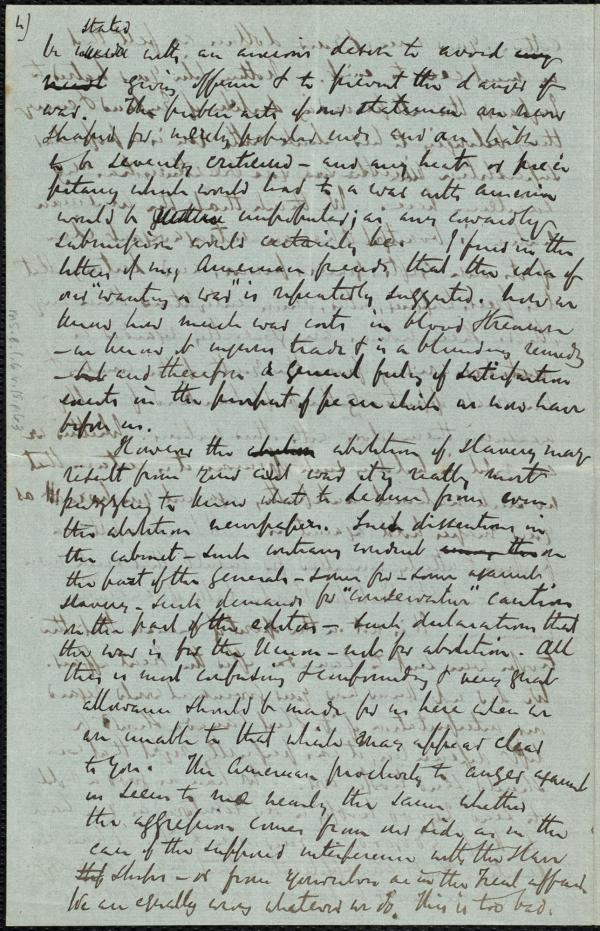 4)
stated
be with an anxious desire to avoid any
must giving offence & to prevent the danger of
war. The public acts of our statesmen are now
shaped for merely popular ends and are liable
to be severely criticised – and any heat or preci
pitancy which would lead to a war with America
would be unpopular; as any cowardly
submission would certainly be. I find in the
letters of my American friends that the idea of
our "wanting a war" is repeatedly suggested. Now we
know how much war costs in blood & treasure
– we know it injures trade & is a blundering remedy
– but and therefore a general feeling of satisfaction
exists in the prospect of peace which we now have
before us.
However the abolition of slavery may
result from your civil war it is really most
puzzling to know what to deduce from even
the abolition newspapers. Such dissentions in
the cabinet – such contrary conduct among the on
the part of the Generals – some for – some against
slavery – such demands for "conservative" caution
on the part of the editors – such declarations that
the war is for the Union – not for abolition. All
this is most confusing & confounding & very great
allowance should be made for us here when we
are unable to that which may appear clear
to you. The American proclivity to anger against
us seems to me nearly the same whether
the aggression comes from our side as in the
case of the supposed interference with the slave
ships – or from your own as in the Trent affair
We are equally wrong whatever we do. This is too bad.